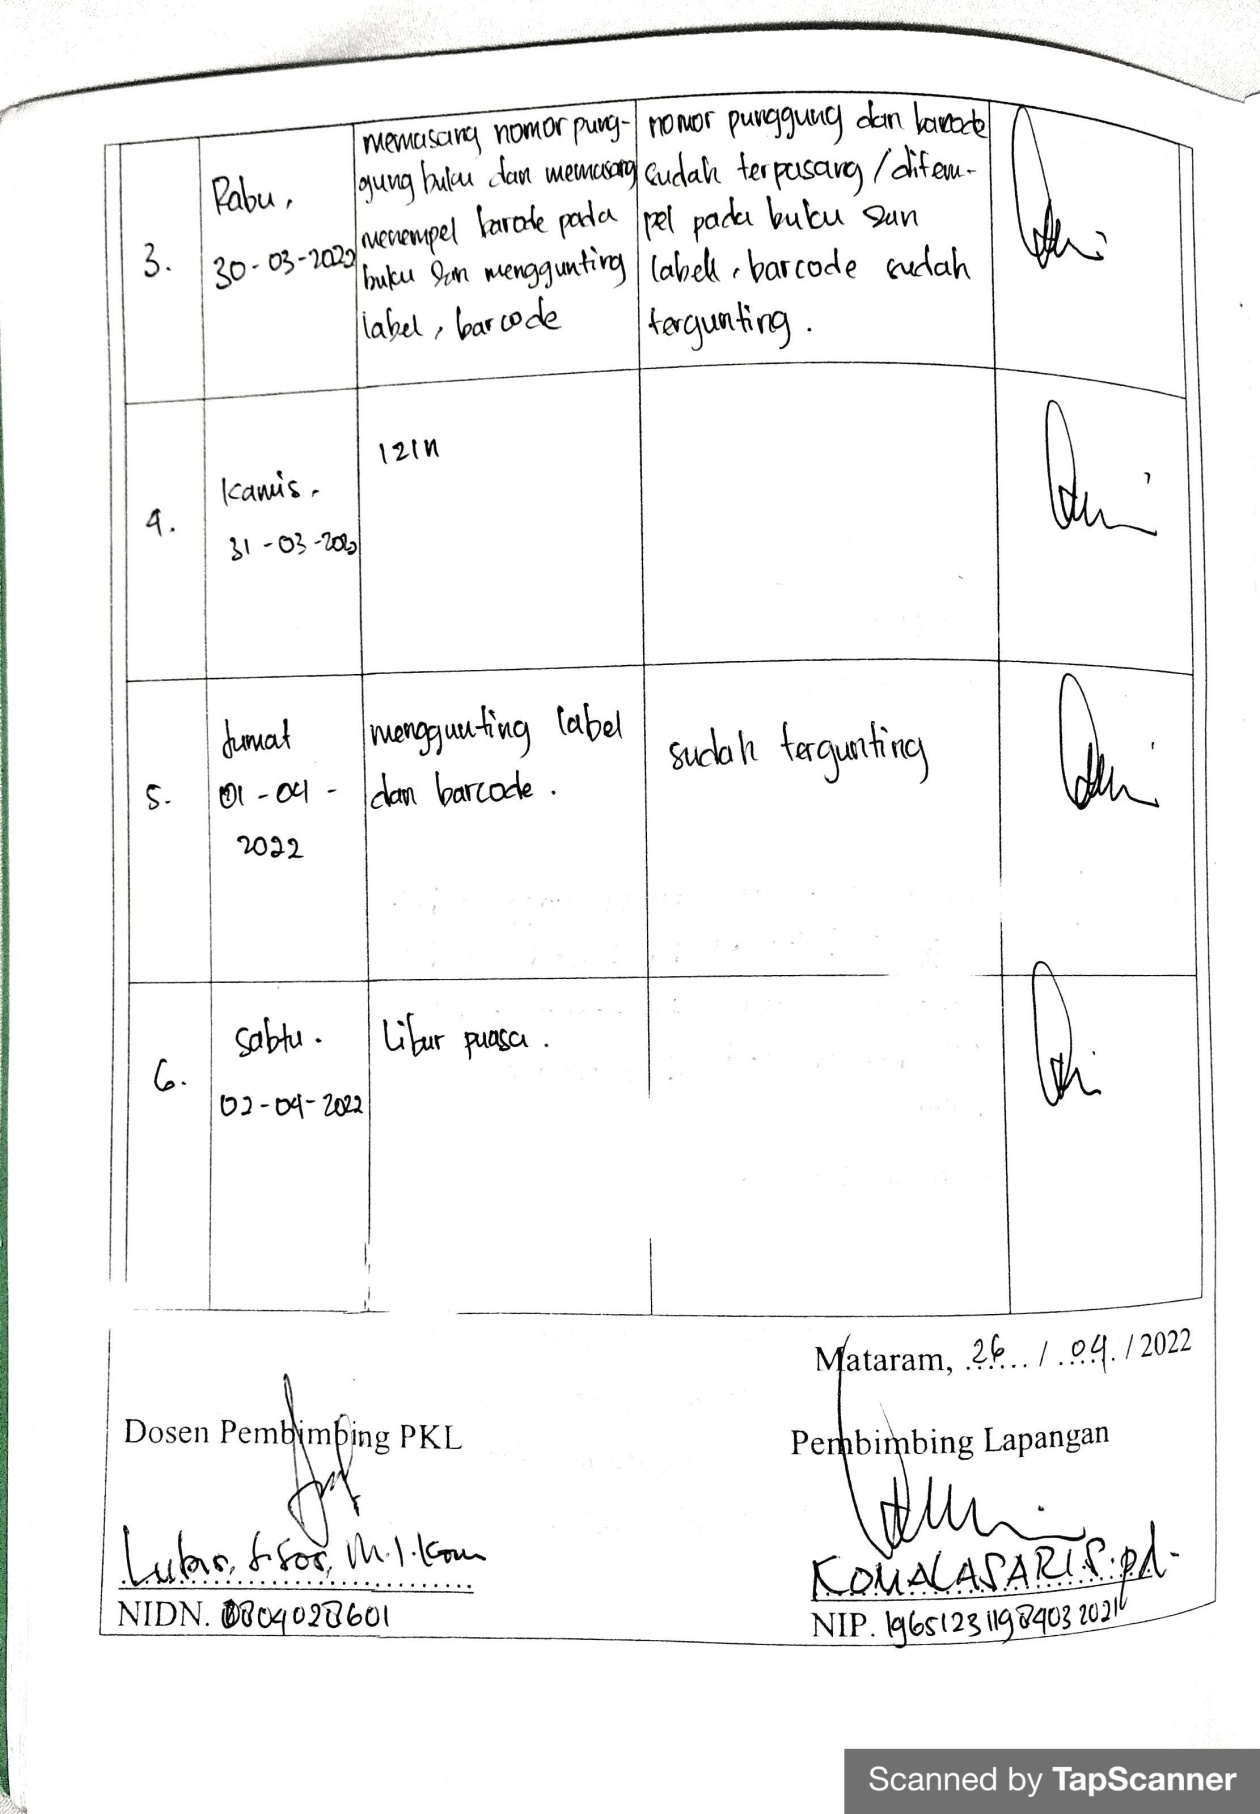 3.
Rabu,
30-03-2022
memasang nomor pung-
gung buku dan memasang
menempel barode pada
buku dan menggunting
label, barcode
nomor punggung dan barcode
sudah terpasang / ditem-
pel pada buku dan
labell, barcode sudah
tergunting.
4.
Kamis.
31-03-2022
IZIN
5.
Jumat
01-04-
2022
menggunting label
dan barcode.
sudah tergunting
6.
Sabtu.
02-04-2022
Libur puasa.
Mataram, 26 / 04 / 2022
Dosen Pembimbing PKL
Pembimbing Lapangan
S.Sos, M.I.Kom
KOMALASARI S.pd
NIDN. 0804028601
NIP. 196512311984032021
Scanned by TapScanner